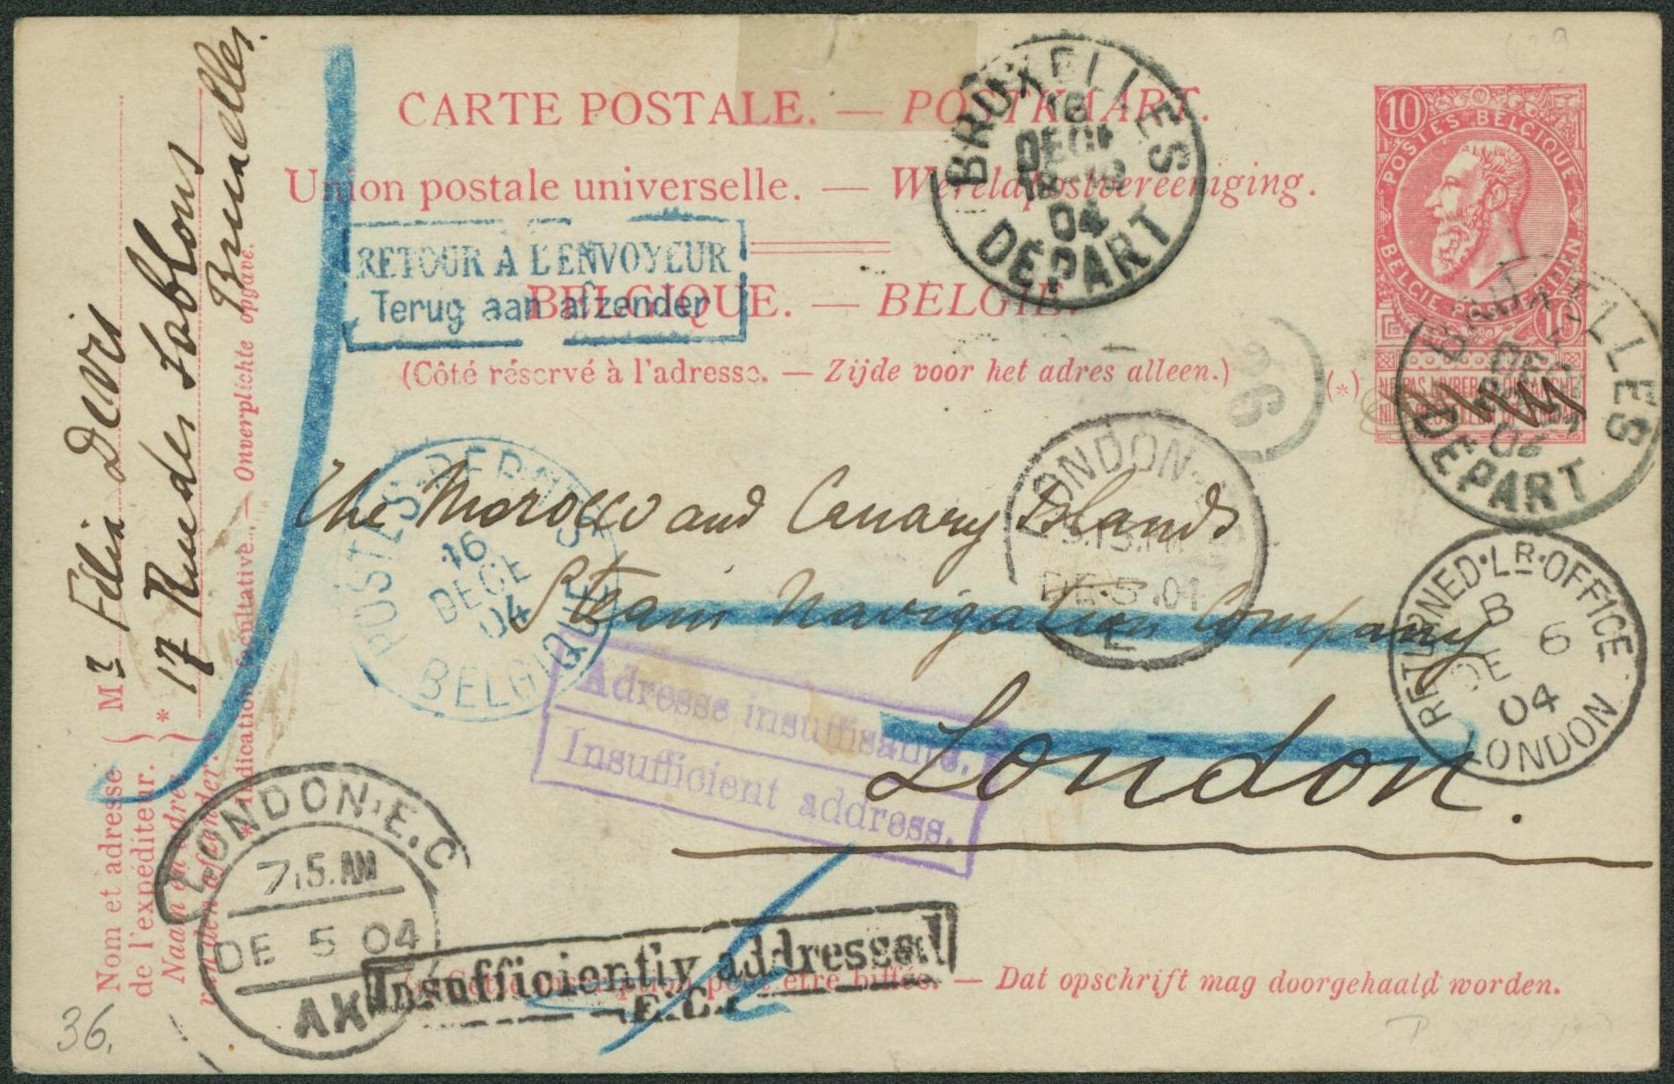 CARTE POSTALE. — POSTKAART.
Union postale universelle. — Wereldpostvereeniging.
BELGIQUE. — BELGIË.
(Côté réservé à l'adresse. — Zijde voor het adres alleen.)
(*)
10
POSTES BELGIQUE
BELGIE
10
BRUXELLES
DEC
04
DÉPART
BRUXELLES
04
DÉPART
RETOUR A L'ENVOYEUR
Terug aan afzender
66
POSTES
16
DECE
04
BELGIQUE
LONDON
DE 5 04
E
The Morocco and Canary Islands
Steam Navigation Company
London.
RETURNED·LR·OFFICE
B
DE 6
04
LONDON
Adresse insuffisante.
Insufficient address.
LONDON·E.C
7.15.AM
DE 5 04
AK
Insufficiently addressed
E.C.
peut être biffée. — Dat opschrift mag doorgehaald worden.
36.
Nom et adresse
de l'expéditeur.
Naam en adres
van den afzender.
Mr
17 Rue des Sablons
Bruxelles
* Indication facultative. — Onverplichte opgave.